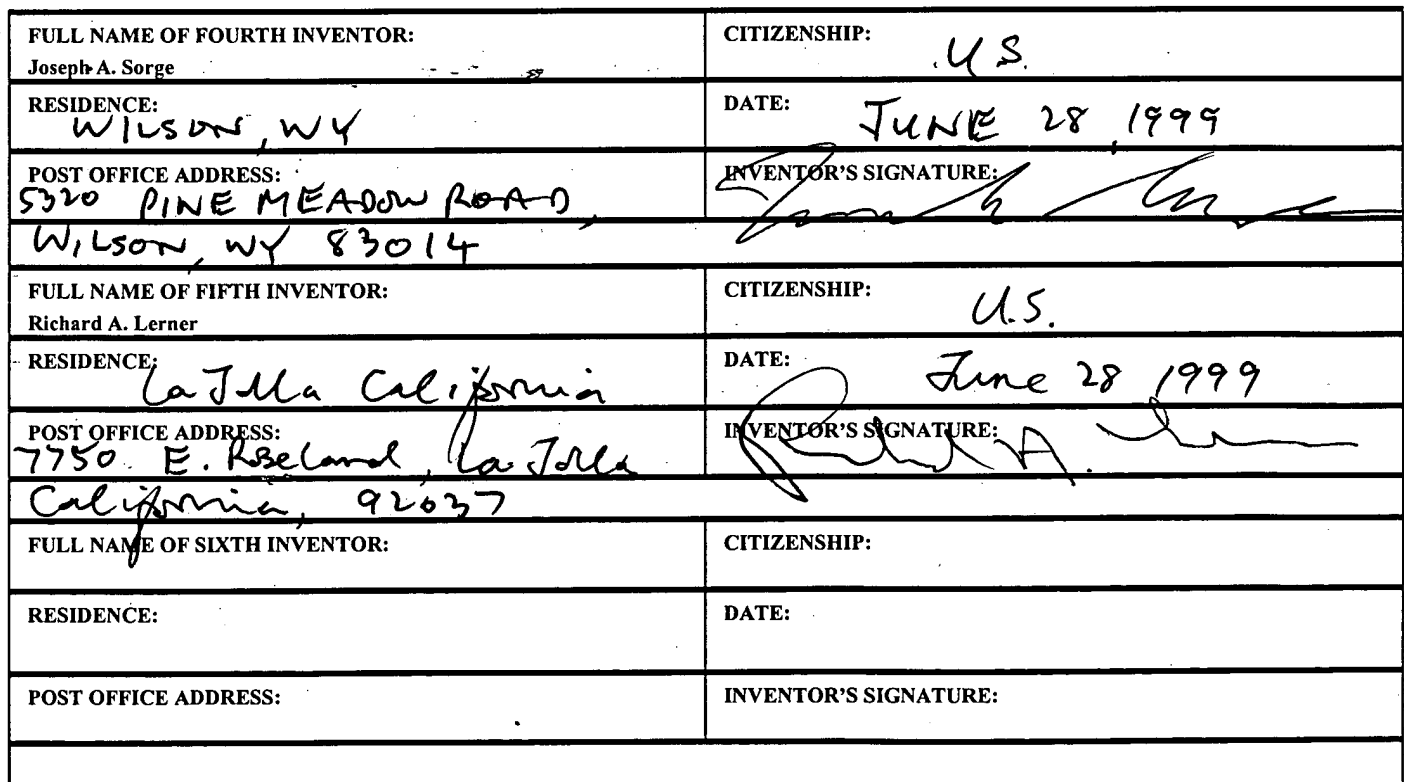 FULL NAME OF FOURTH INVENTOR:
Joseph A. Sorge
CITIZENSHIP:
U.S.
RESIDENCE:
WILSON, WY
DATE:
JUNE 28, 1999
POST OFFICE ADDRESS:
5320 PINE MEADOW ROAD,
INVENTOR'S SIGNATURE:
WILSON, WY 83014
FULL NAME OF FIFTH INVENTOR:
Richard A. Lerner
CITIZENSHIP:
U.S.
RESIDENCE:
La Jolla California
DATE:
June 28, 1999
POST OFFICE ADDRESS:
7750 E. Roseland, La Jolla
INVENTOR'S SIGNATURE:
California, 92037
FULL NAME OF SIXTH INVENTOR:
CITIZENSHIP:
RESIDENCE:
DATE:
POST OFFICE ADDRESS:
INVENTOR'S SIGNATURE: